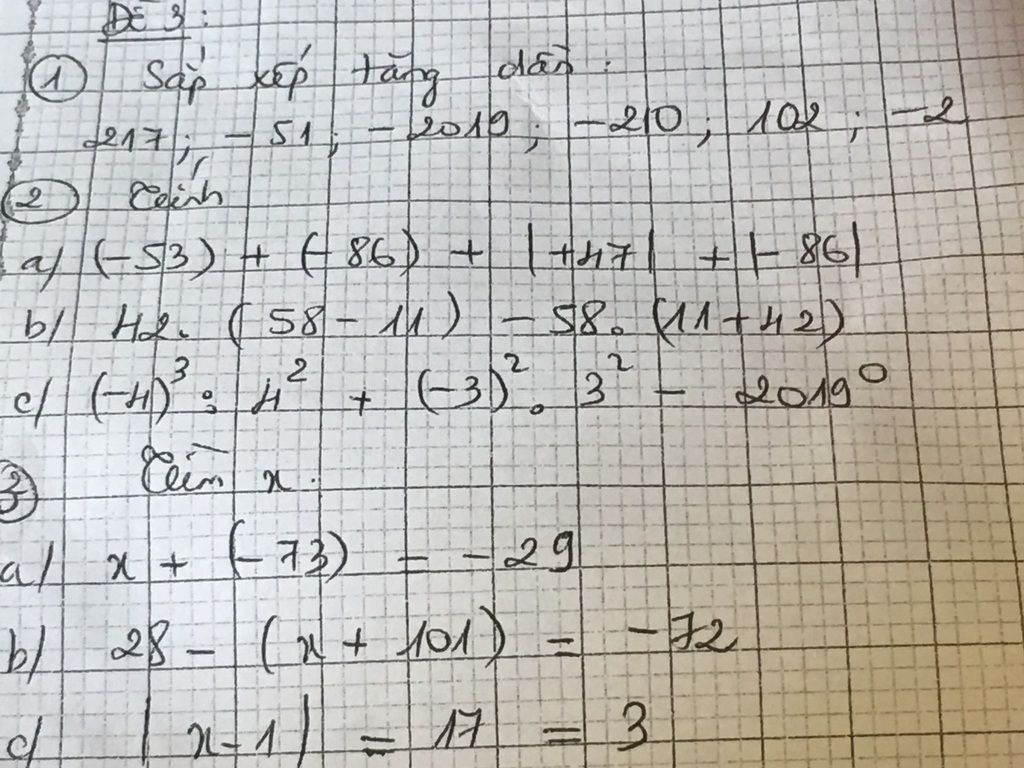 Đề 3:
1 Sắp xếp tăng dần:
217; -51; -2019; -210; 102; -2
2 Tính
a/ (-53) + (-86) + |+47| + |-86|
b/ 42. (58 - 11) - 58. (11 + 42)
c/ (-4)³ : 4² + (-3)² . 3² - 2019⁰
3 Tìm x.
a/ x + (-73) = -29
b/ 28 - (x + 101) = -72
c/ |x - 1| = 17 = 3